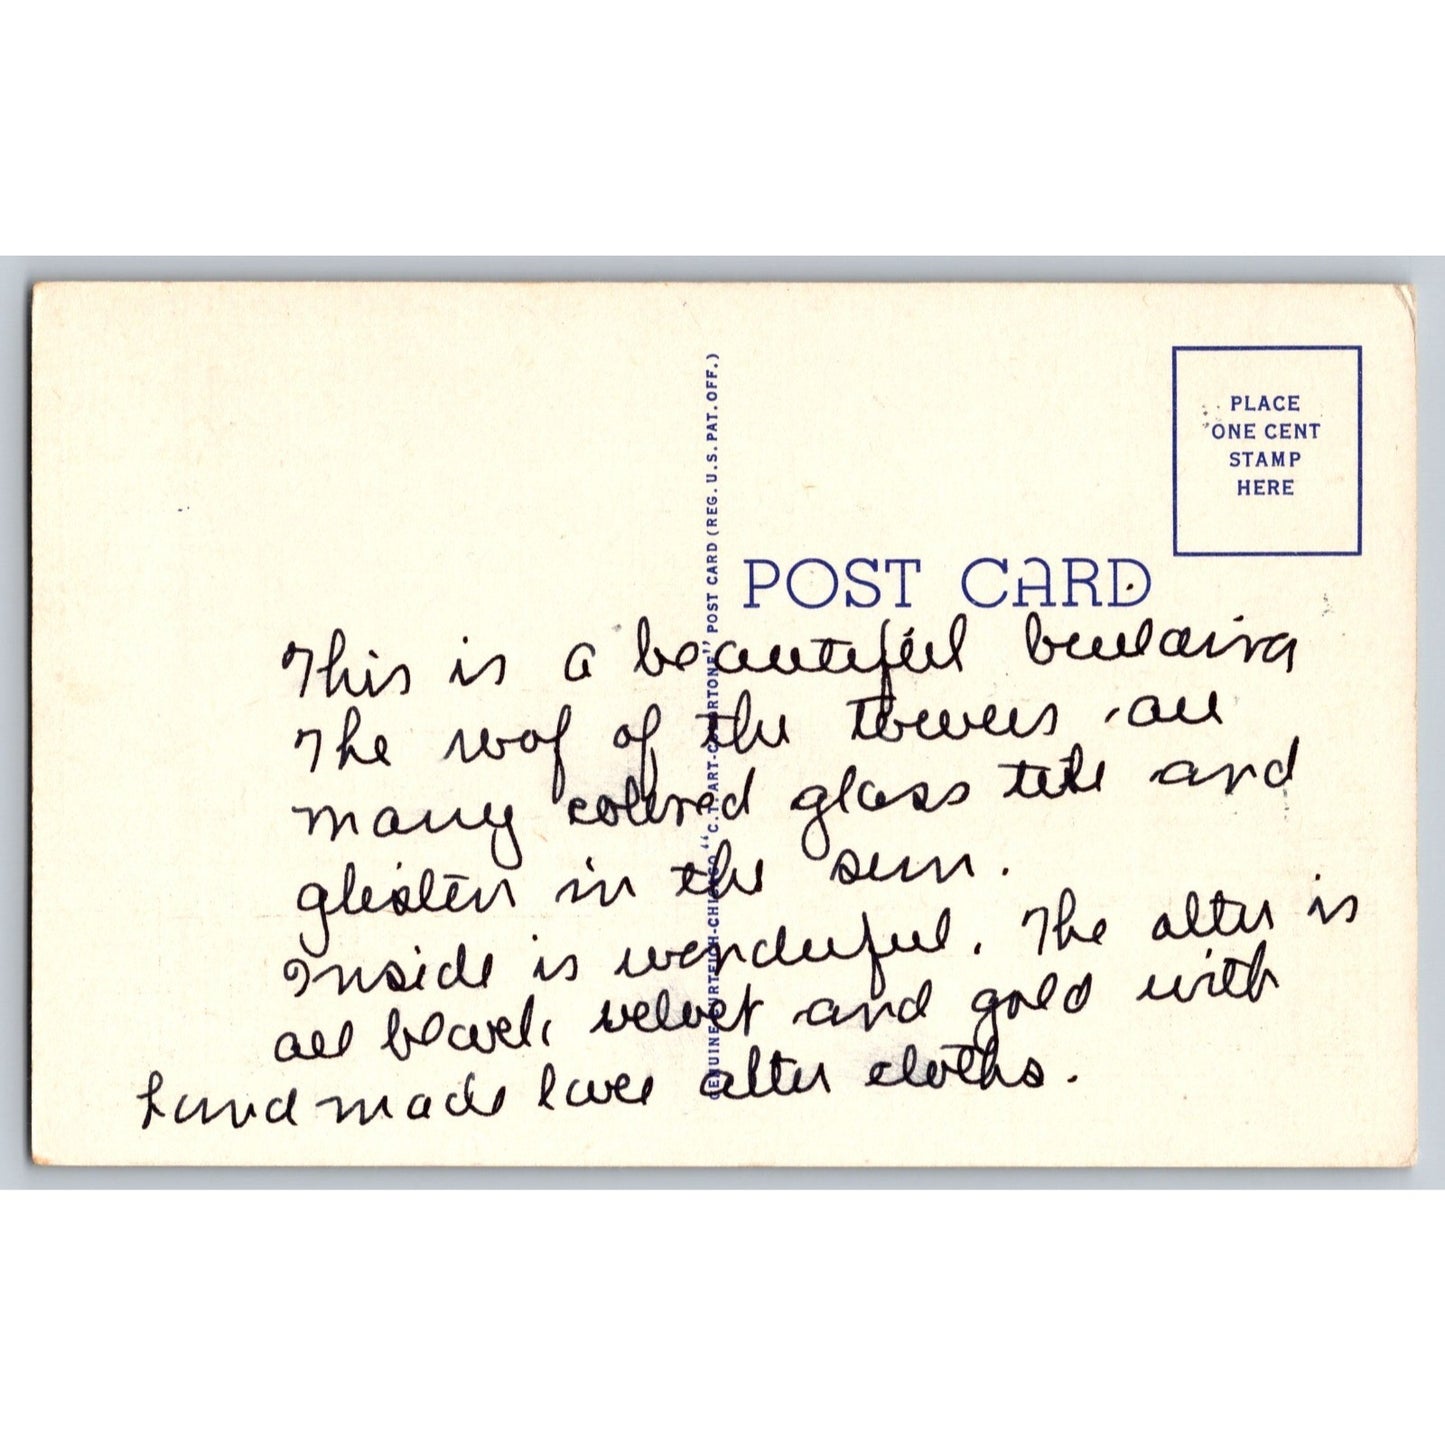 PLACE
ONE CENT
STAMP
HERE
POST CARD
GENUINE CURTEICH-CHICAGO "C.T. ART-COLORTONE" POST CARD (REG. U.S. PAT. OFF.)
This is a beautiful building
The roof of the towers are
many colored glass tile and
glisten in the sun.
Inside is wonderful. The alter is
all black velvet and gold with
hand made lace alter cloths.